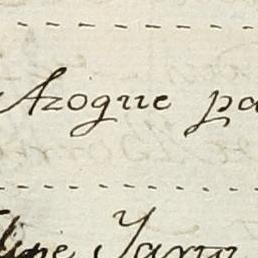 Azogue pa
lipe Jario